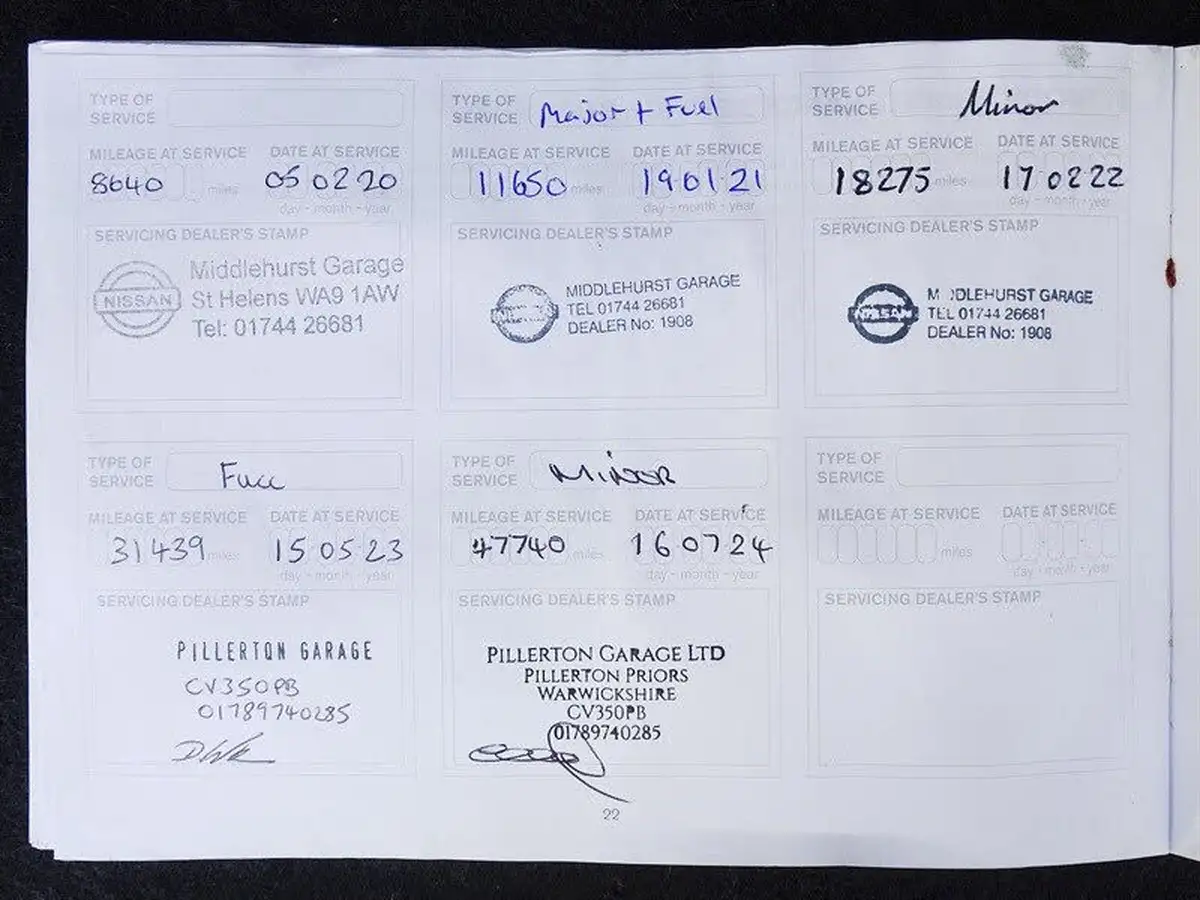 TYPE OF
SERVICE
MILEAGE AT SERVICE DATE AT SERVICE
8640 miles 05 02 20
day - month - year
SERVICING DEALER'S STAMP
NISSAN
Middlehurst Garage
St Helens WA9 1AW
Tel: 01744 26681
TYPE OF
SERVICE Major + Fuel
MILEAGE AT SERVICE DATE AT SERVICE
11650 miles 19 01 21
day - month - year
SERVICING DEALER'S STAMP
MIDDLEHURST GARAGE
TEL 01744 26681
DEALER No: 1908
TYPE OF
SERVICE Minor
MILEAGE AT SERVICE DATE AT SERVICE
18275 miles 17 02 22
day - month - year
SERVICING DEALER'S STAMP
NISSAN
M DLEHURST GARAGE
TEL 01744 26681
DEALER No: 1908
TYPE OF
SERVICE Full
MILEAGE AT SERVICE DATE AT SERVICE
31439 miles 15 05 23
day - month - year
SERVICING DEALER'S STAMP
PILLERTON GARAGE
CV350PB
01789740285
TYPE OF
SERVICE MINOR
MILEAGE AT SERVICE DATE AT SERVICE
47740 miles 16 07 24
day - month - year
SERVICING DEALER'S STAMP
PILLERTON GARAGE LTD
PILLERTON PRIORS
WARWICKSHIRE
CV350PB
01789740285
TYPE OF
SERVICE
MILEAGE AT SERVICE DATE AT SERVICE
miles
day - month - year
SERVICING DEALER'S STAMP
22